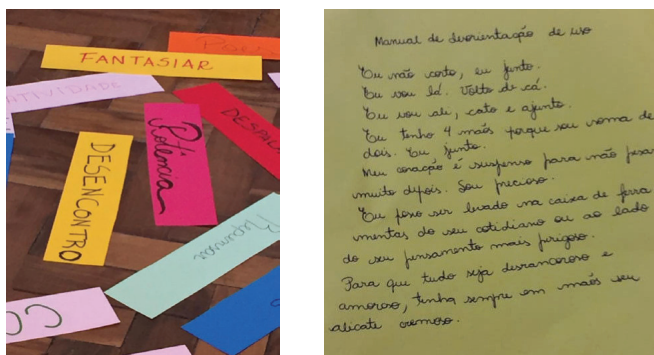 FANTASIAR
DESENCONTRO
Potência
Manual de desorientação de uso
Eu não corto, eu junto.
Eu vou lá. Volto de cá.
Eu vou ali, cato e ajunto.
Eu tenho 4 mãos porque sou soma de
dois. Eu junto.
Meu coração é suspenso para não pesar
muito depois. Sou precioso.
Eu posso ser levado na caixa de ferra
mentas do seu cotidiano ou ao lado
do seu pensamento mais perigoso.
Para que tudo seja desrancoroso e
amoroso, tenha sempre em mãos seu
alicate cremoso.